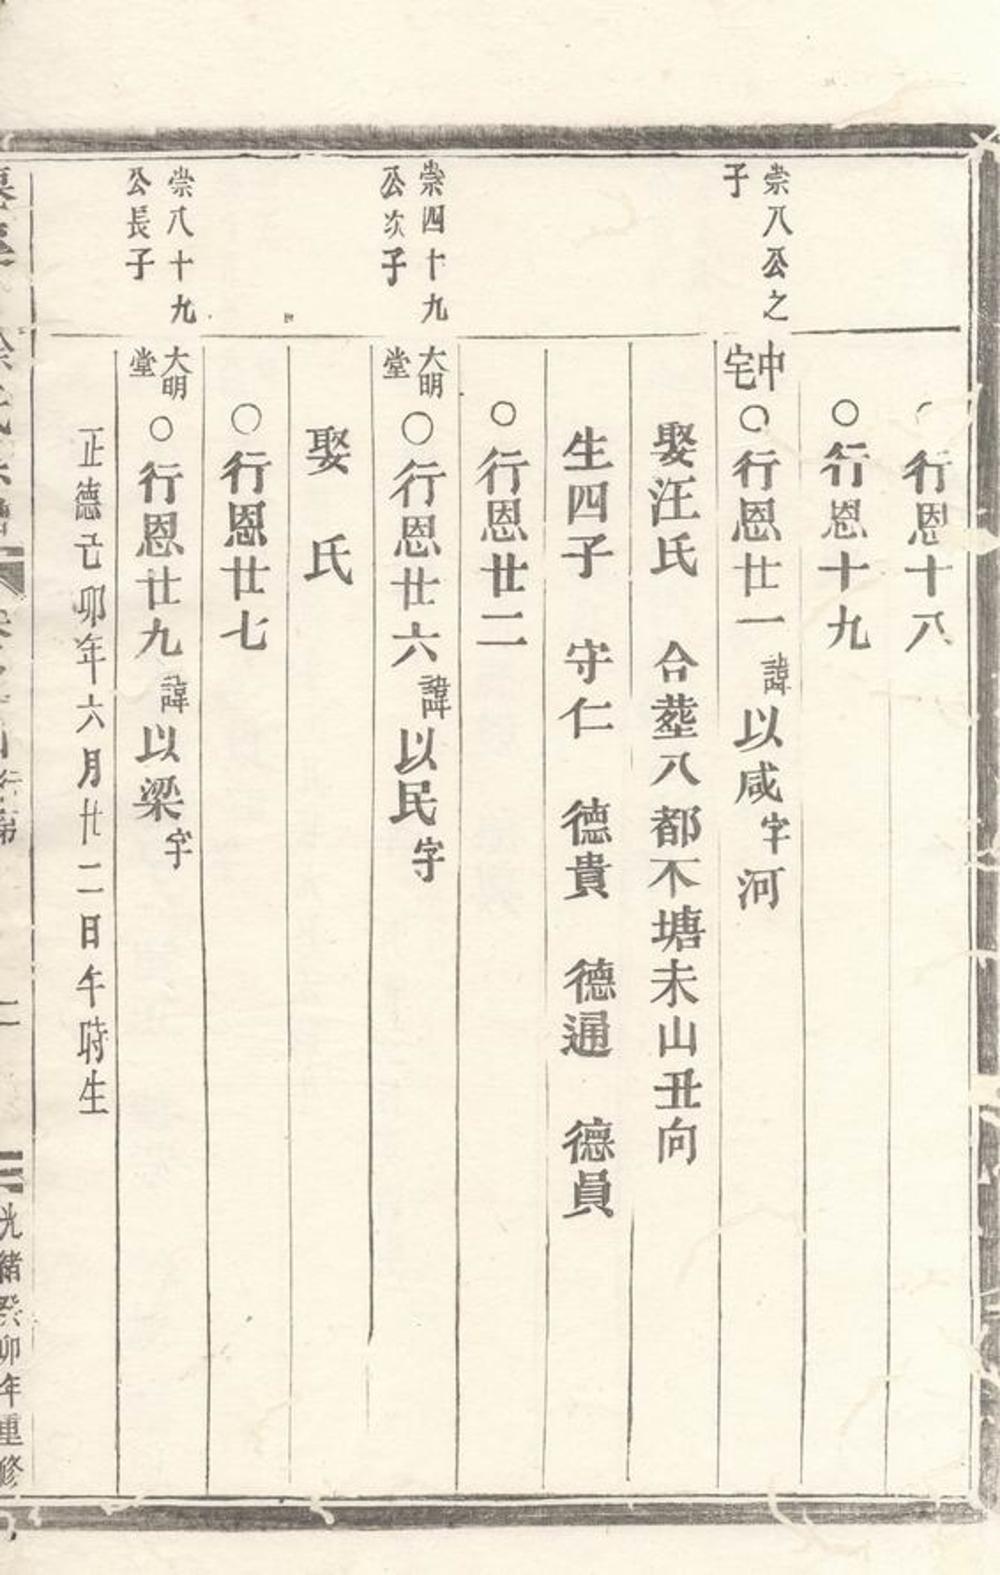 行恩十八
行恩十九
崇八公之
子
中宅
○行恩廿一 諱以咸字河
娶汪氏 合塟八都不塘未山丑向
生四子 守仁 德貴 德通 德員
○行恩廿二
崇四十九
公次子
大明
堂
○行恩廿六 諱以民字
娶 氏
○行恩廿七
崇八十九
公長子
大明
堂
○行恩廿九 諱以梁字
正德己卯年六月廿二日午時生
行第
二
光緒癸卯年重修